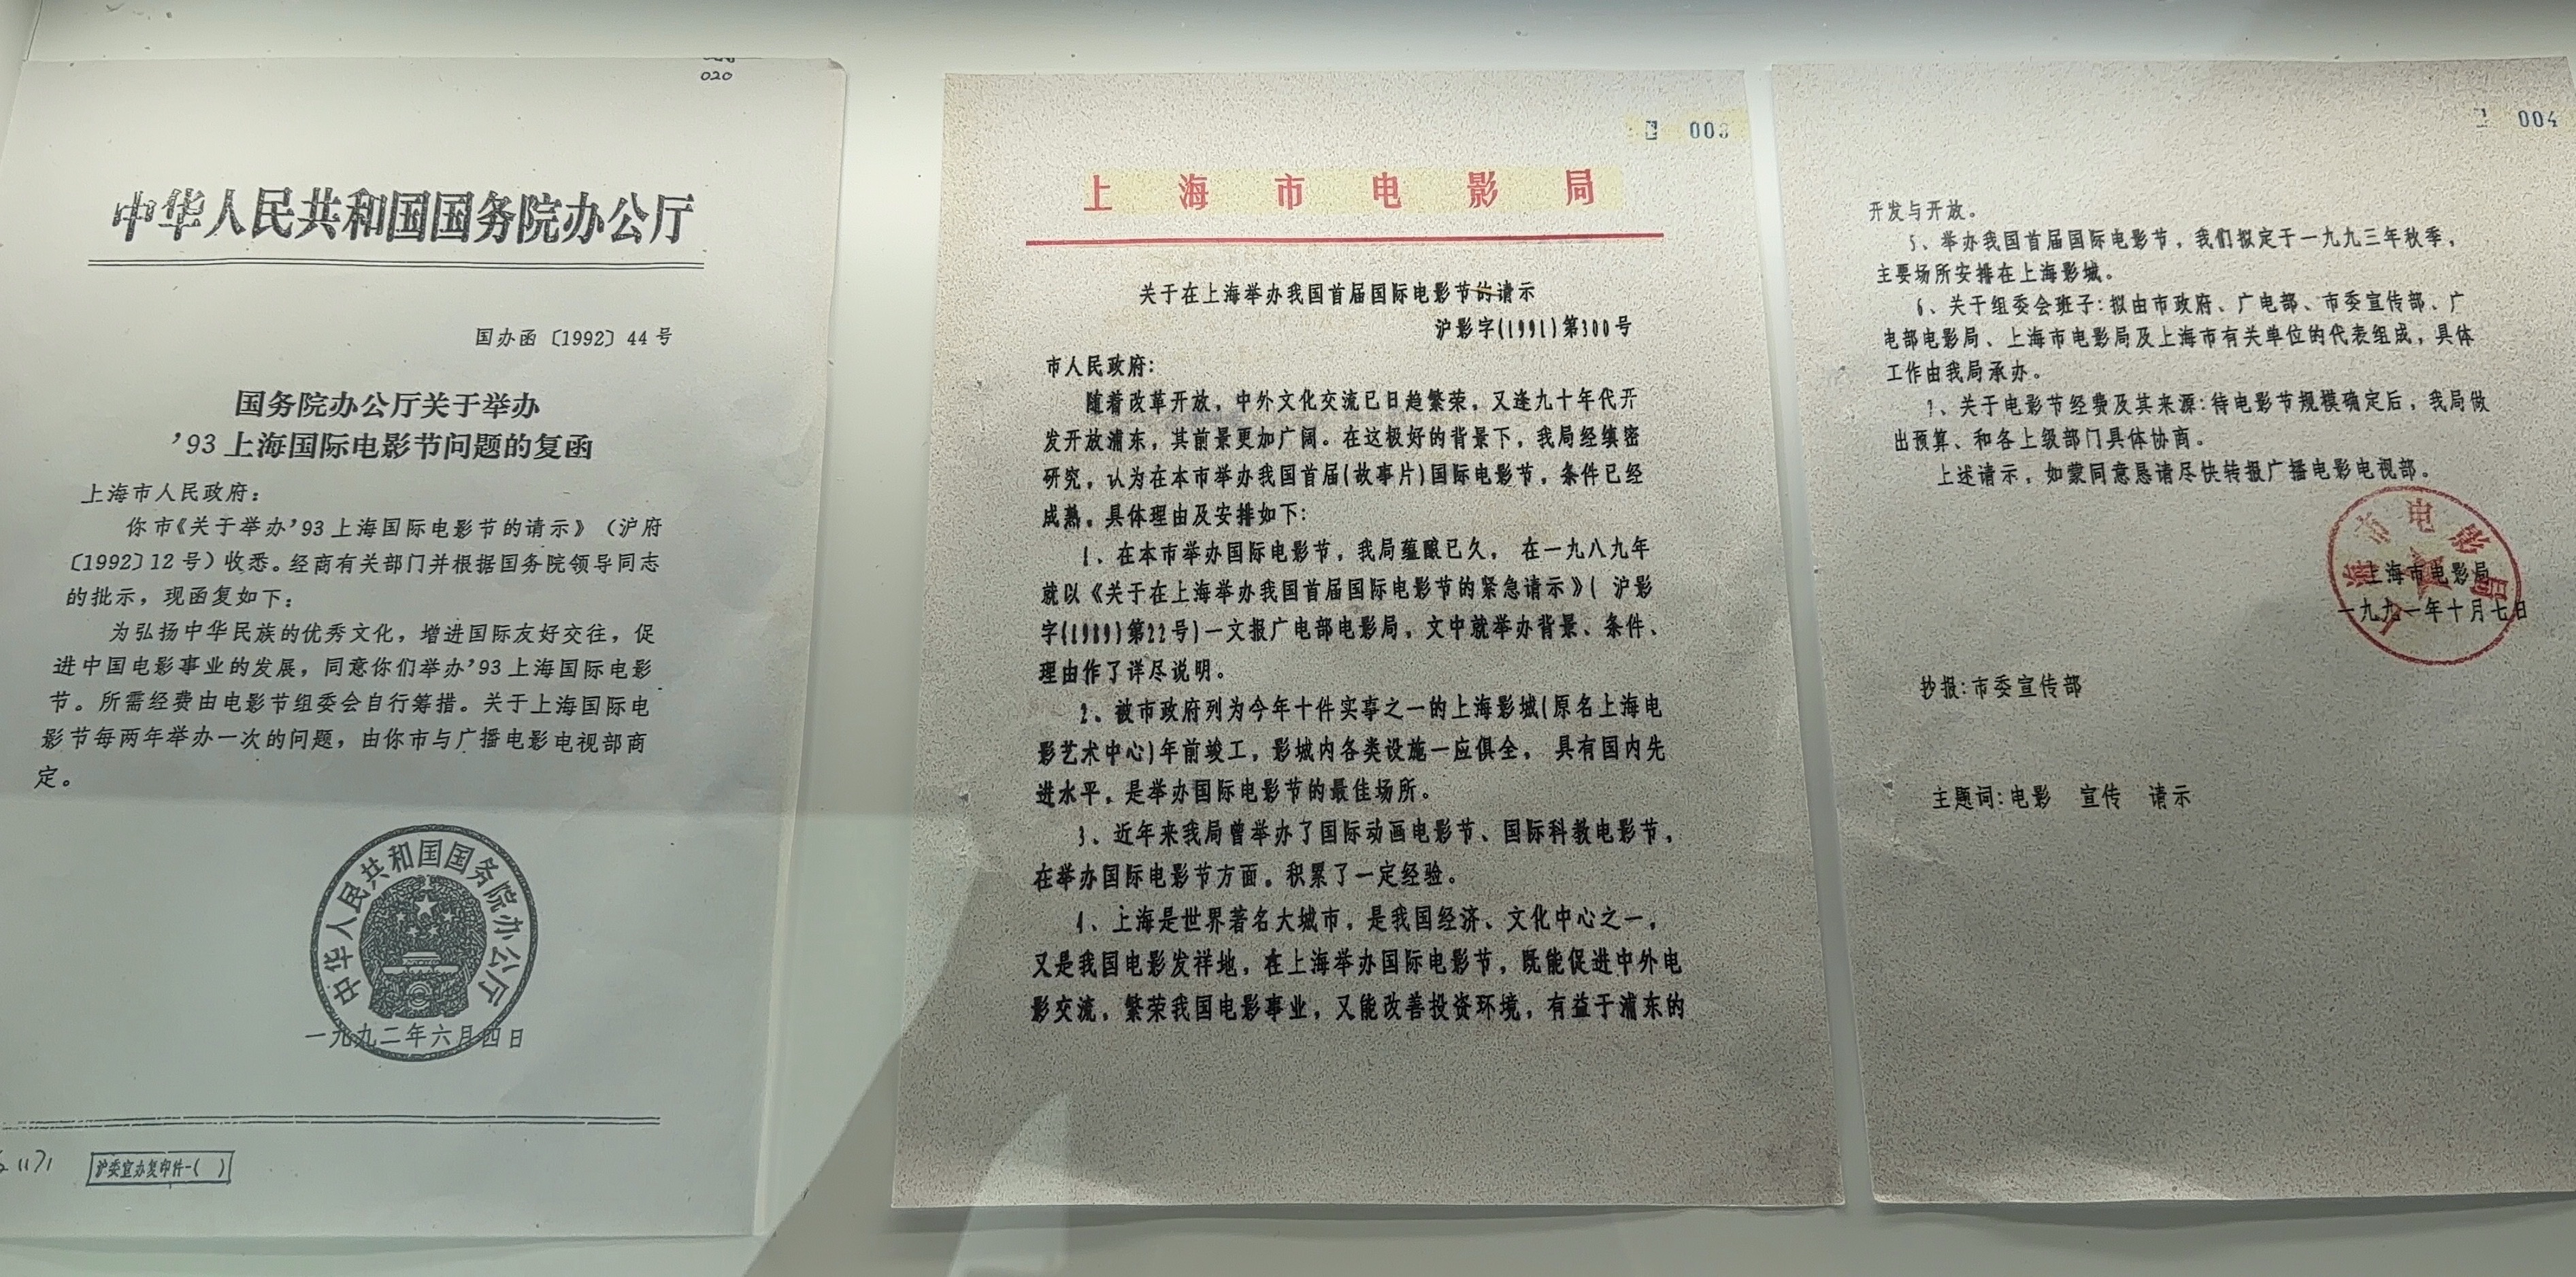 020
中华人民共和国国务院办公厅
国办函〔1992〕44号
国务院办公厅关于举办
’93上海国际电影节问题的复函
上海市人民政府：
你市《关于举办’93上海国际电影节的请示》（沪府
〔1992〕12号）收悉。经商有关部门并根据国务院领导同志
的批示，现函复如下：
为弘扬中华民族的优秀文化，增进国际友好交往，促
进中国电影事业的发展，同意你们举办’93上海国际电影
节。所需经费由电影节组委会自行筹措。关于上海国际电
影节每两年举办一次的问题，由你市与广播电影电视部商
定。
中华人民共和国国务院办公厅
一九九二年六月四日
沪委宣办复印件-( )
003
上海市电影局
关于在上海举办我国首届国际电影节的请示
沪影字(1991)第300号
市人民政府：
随着改革开放，中外文化交流已日趋繁荣，又逢九十年代开
发开放浦东，其前景更加广阔。在这极好的背景下，我局经缜密
研究，认为在本市举办我国首届(故事片)国际电影节，条件已经
成熟。具体理由及安排如下：
1、在本市举办国际电影节，我局蕴酿已久， 在一九八九年
就以《关于在上海举办我国首届国际电影节的紧急请示》( 沪影
字(1989)第22号)一文报广电部电影局。文中就举办背景、条件、
理由作了详尽说明。
2、被市政府列为今年十件实事之一的上海影城(原名上海电
影艺术中心)年前竣工，影城内各类设施一应俱全， 具有国内先
进水平。是举办国际电影节的最佳场所。
3、近年来我局曾举办了国际动画电影节、国际科教电影节，
在举办国际电影节方面。积累了一定经验。
4、上海是世界著名大城市，是我国经济、文化中心之一，
又是我国电影发祥地，在上海举办国际电影节，既能促进中外电
影交流，繁荣我国电影事业，又能改善投资环境，有益于浦东的
004
开发与开放。
5、举办我国首届国际电影节，我们拟定于一九九三年秋季，
主要场所安排在上海影城。
6、关于组委会班子：拟由市政府、广电部、市委宣传部、广
电部电影局、上海市电影局及上海市有关单位的代表组成，具体
工作由我局承办。
7、关于电影节经费及其来源：待电影节规模确定后，我局做
出预算、和各上级部门具体协商。
上述请示，如蒙同意恳请尽快转报广播电影电视部。
上海市电影局
上海市电影局
一九九一年十月七日
抄报：市委宣传部
主题词：电影 宣传 请示